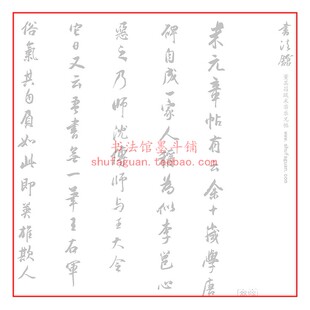 米元章帖有云余十歲學唐
碑自成一家人稱為似李邕心
惡之乃師沈傳師与王大令
它日又云吾書無一筆王右軍
俗氣其自負如此即英雄欺人
書法館
书法馆墨斗铺
shufaguan.taobao.com